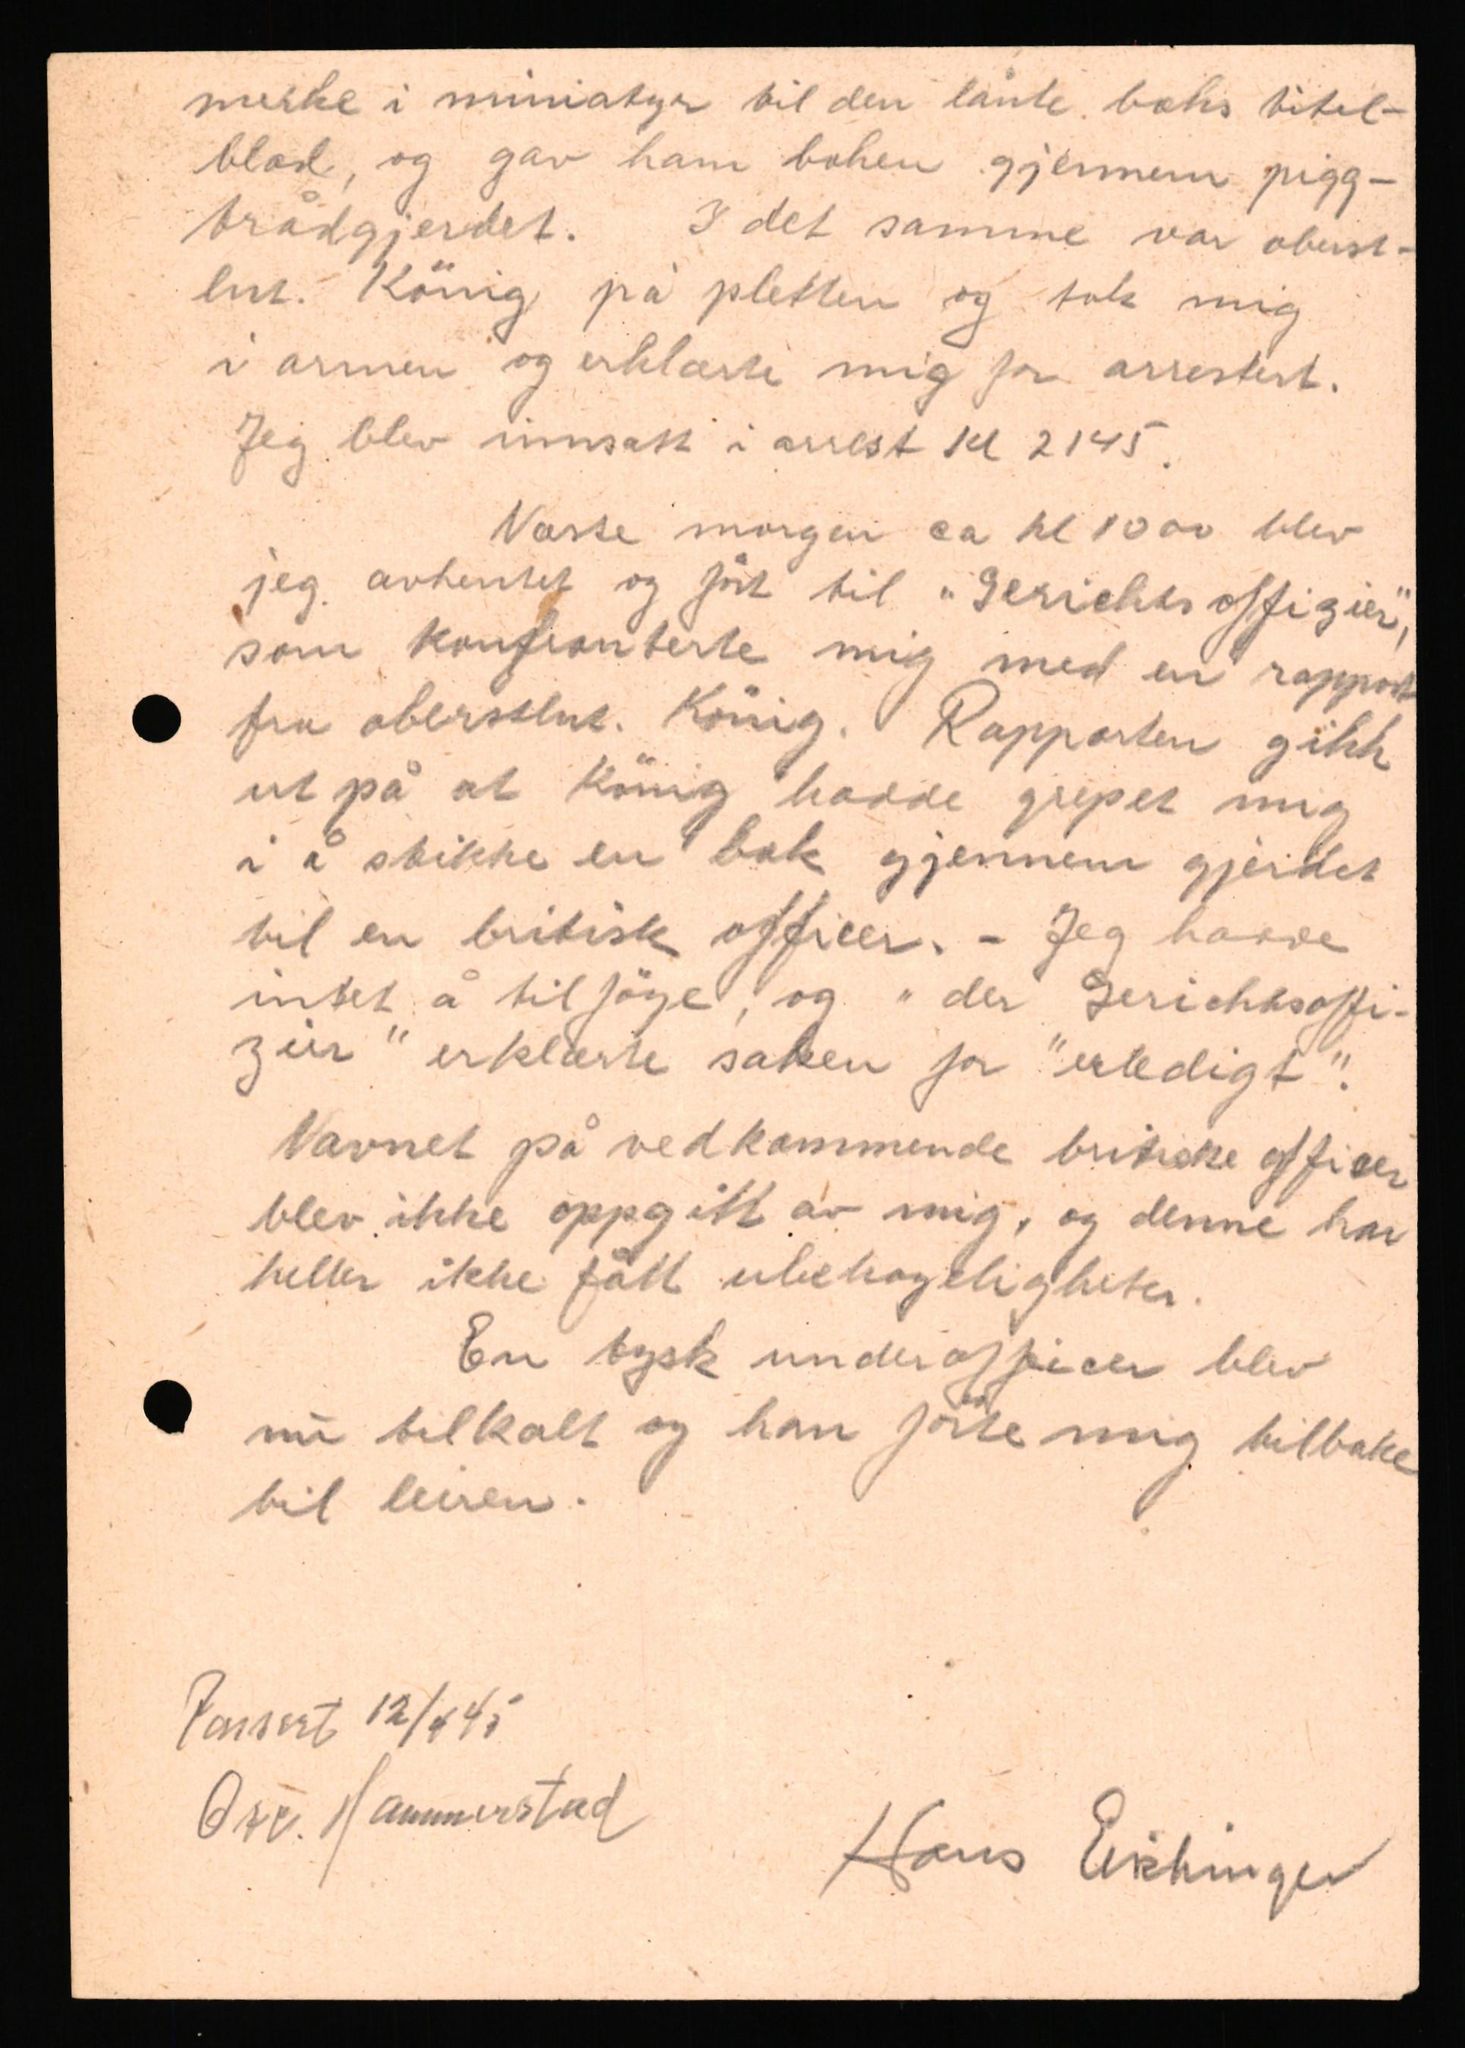 merke i miniatyr til den lånte boks titel-
blad, og gav ham boken gjennem pigg-
trådgjerdet. I det samme var oberst-
lnt. König på pletten og tok mig
i armen og erklærte mig for arrestert.
Jeg blev innsatt i arrest kl 2145.
Næste morgen ca kl 1000 blev
jeg avhentet og ført til "Gerichtsoffizier",
som konfronterte mig med en rapport
fra oberstlnt. König. Rapporten gikk
ut på at König hadde grepet mig
i å stikke en bok gjennem gjerdet
til en britisk officer. - Jeg hadde
intet å tilføye, og "der Gerichtsoffi-
zier" erklærte saken for "erledigt".
Navnet på vedkommende britiske officer
blev ikke oppgitt av mig, og denne har
heller ikke fått ubehageligheter.
En tysk underofficer blev
nu tilkalt og han førte mig tilbake
til leiren.
Passert 12/4 45
Hammerstad
Hans Eichinger